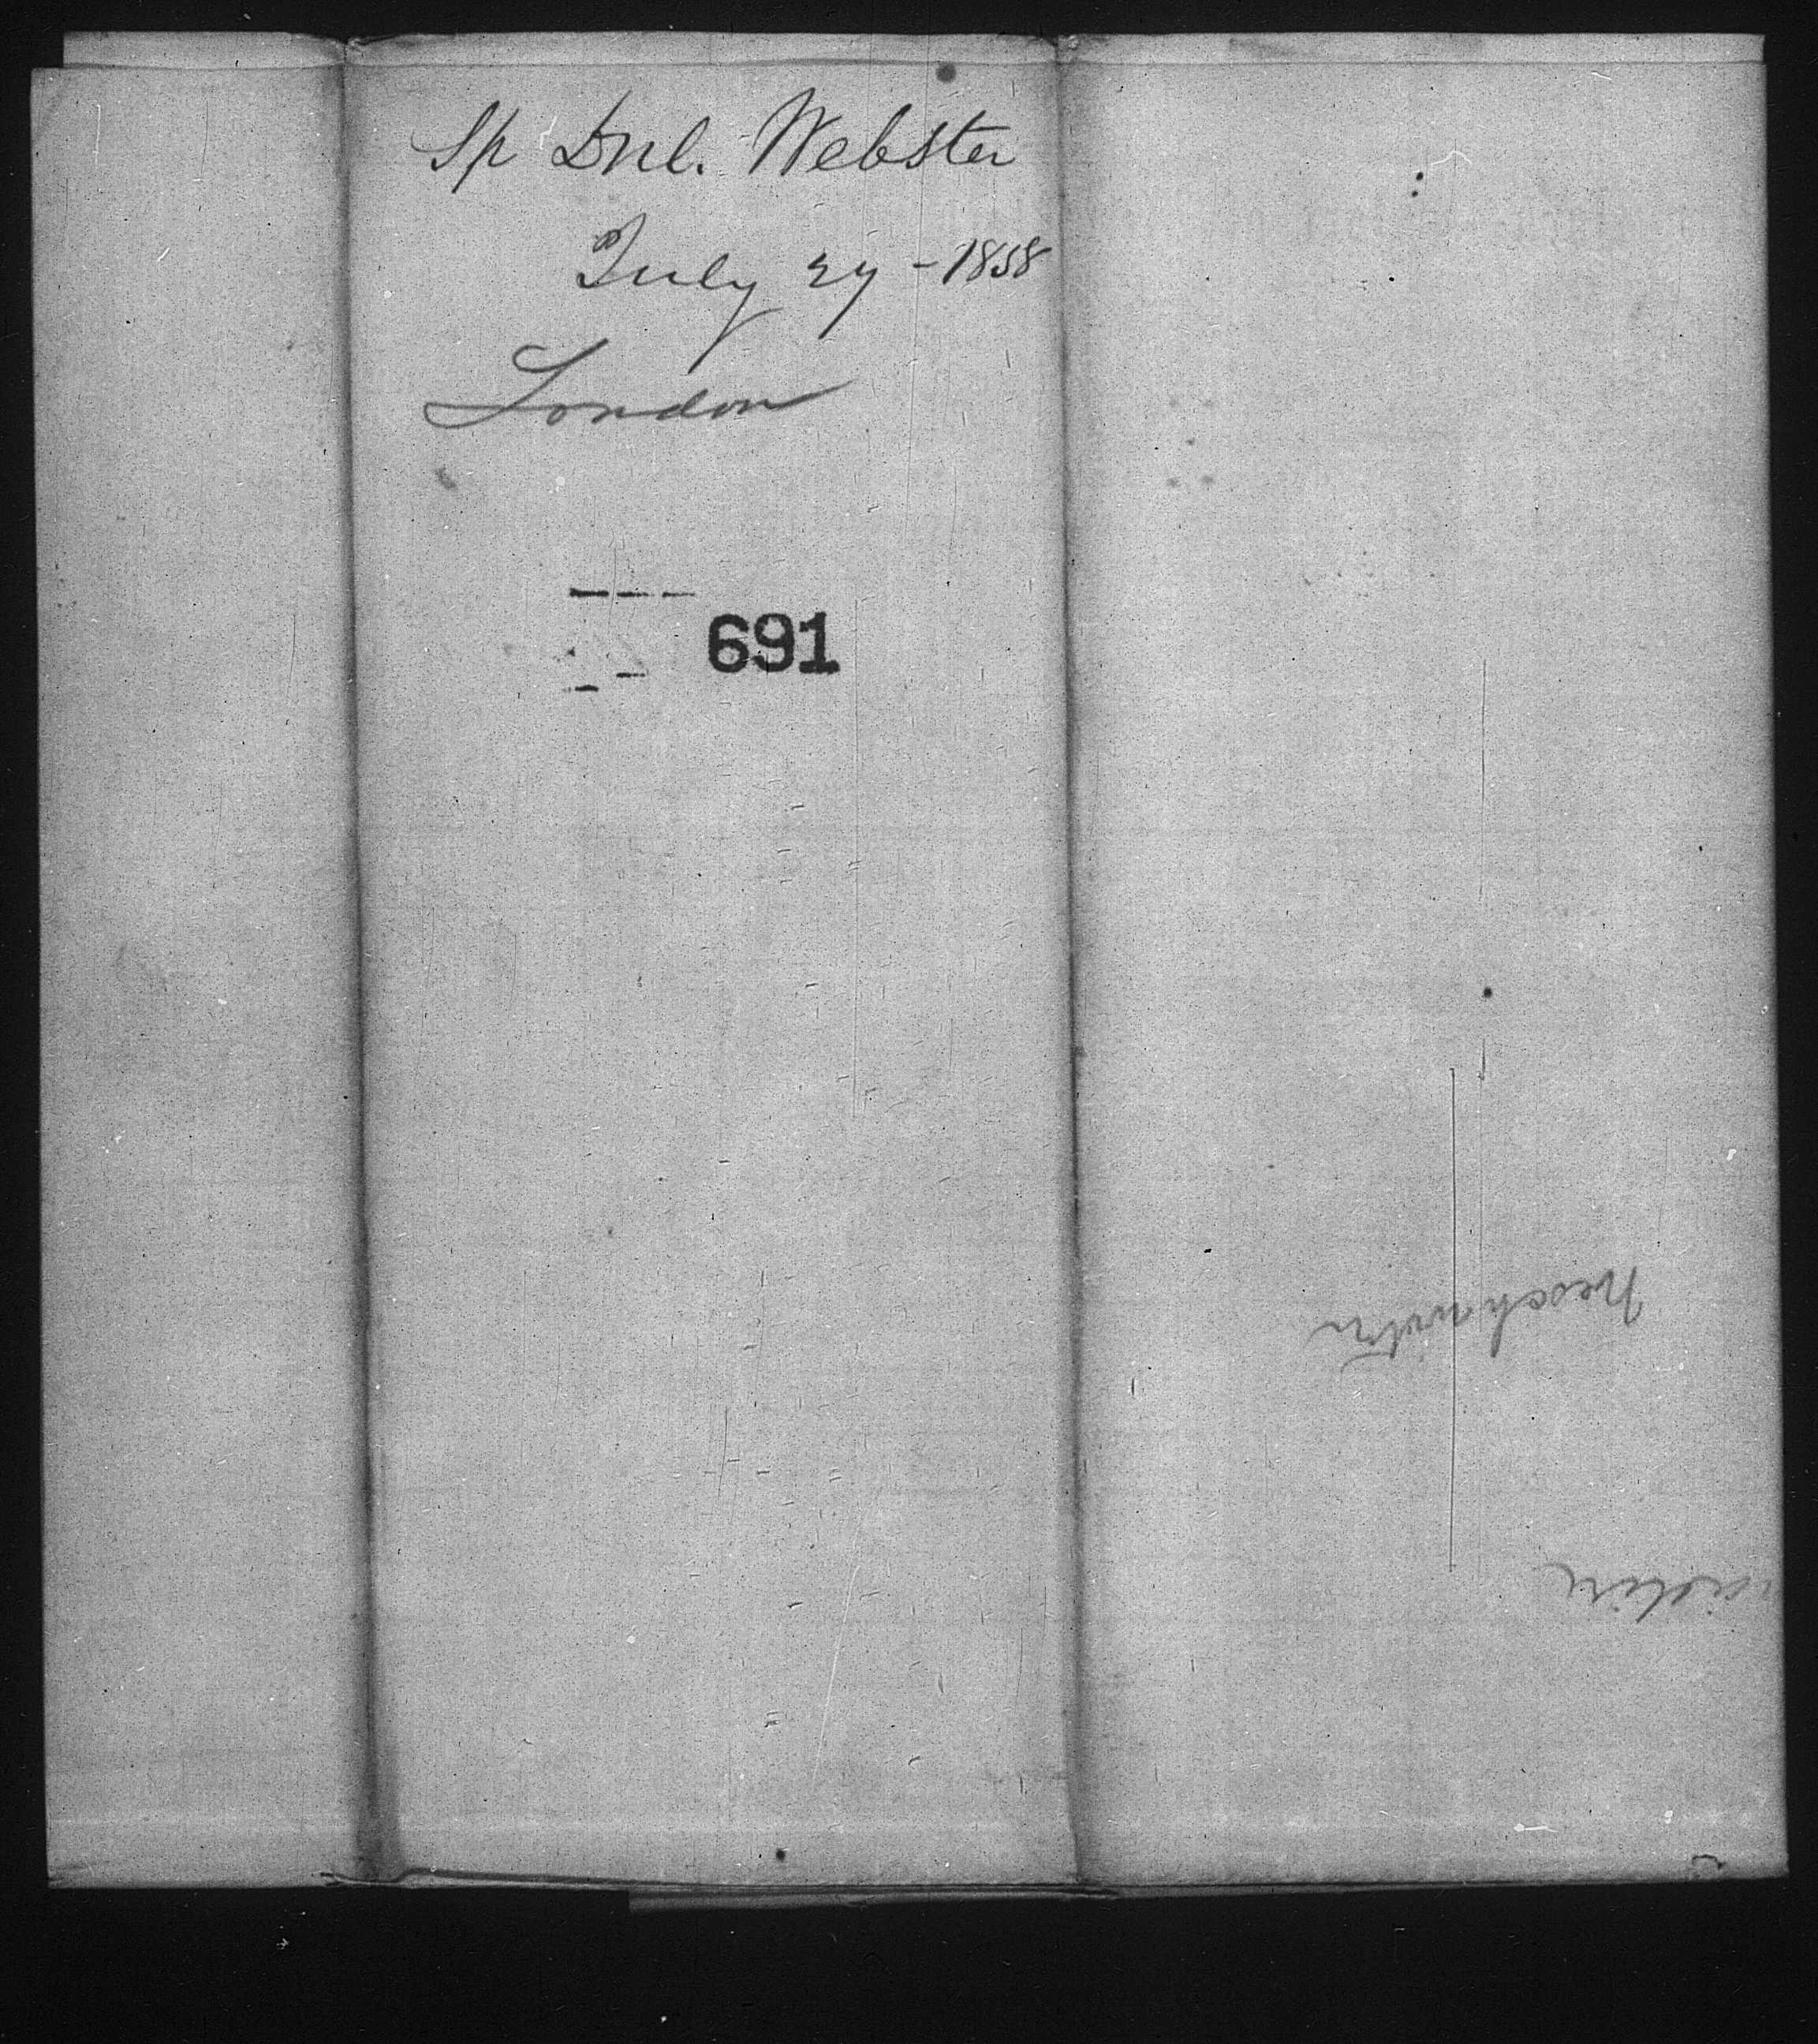 Sp Dnl. Webster
July 27 - 1858
London
691